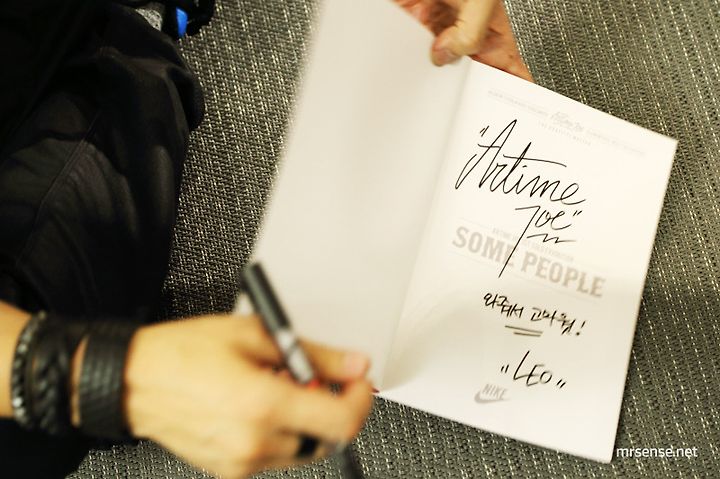 "Artime
Joe"
SOME PEOPLE
와줘서 고마워!
"LEO"
NIKE
mrsense.net